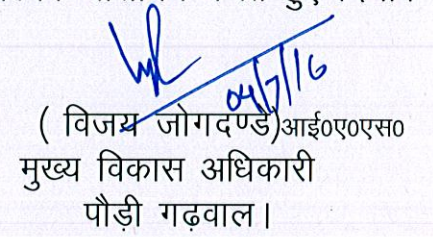 04/7/16
( विजय जोगदण्डे)आई०ए०एस०
मुख्य विकास अधिकारी
पौड़ी गढ़वाल।